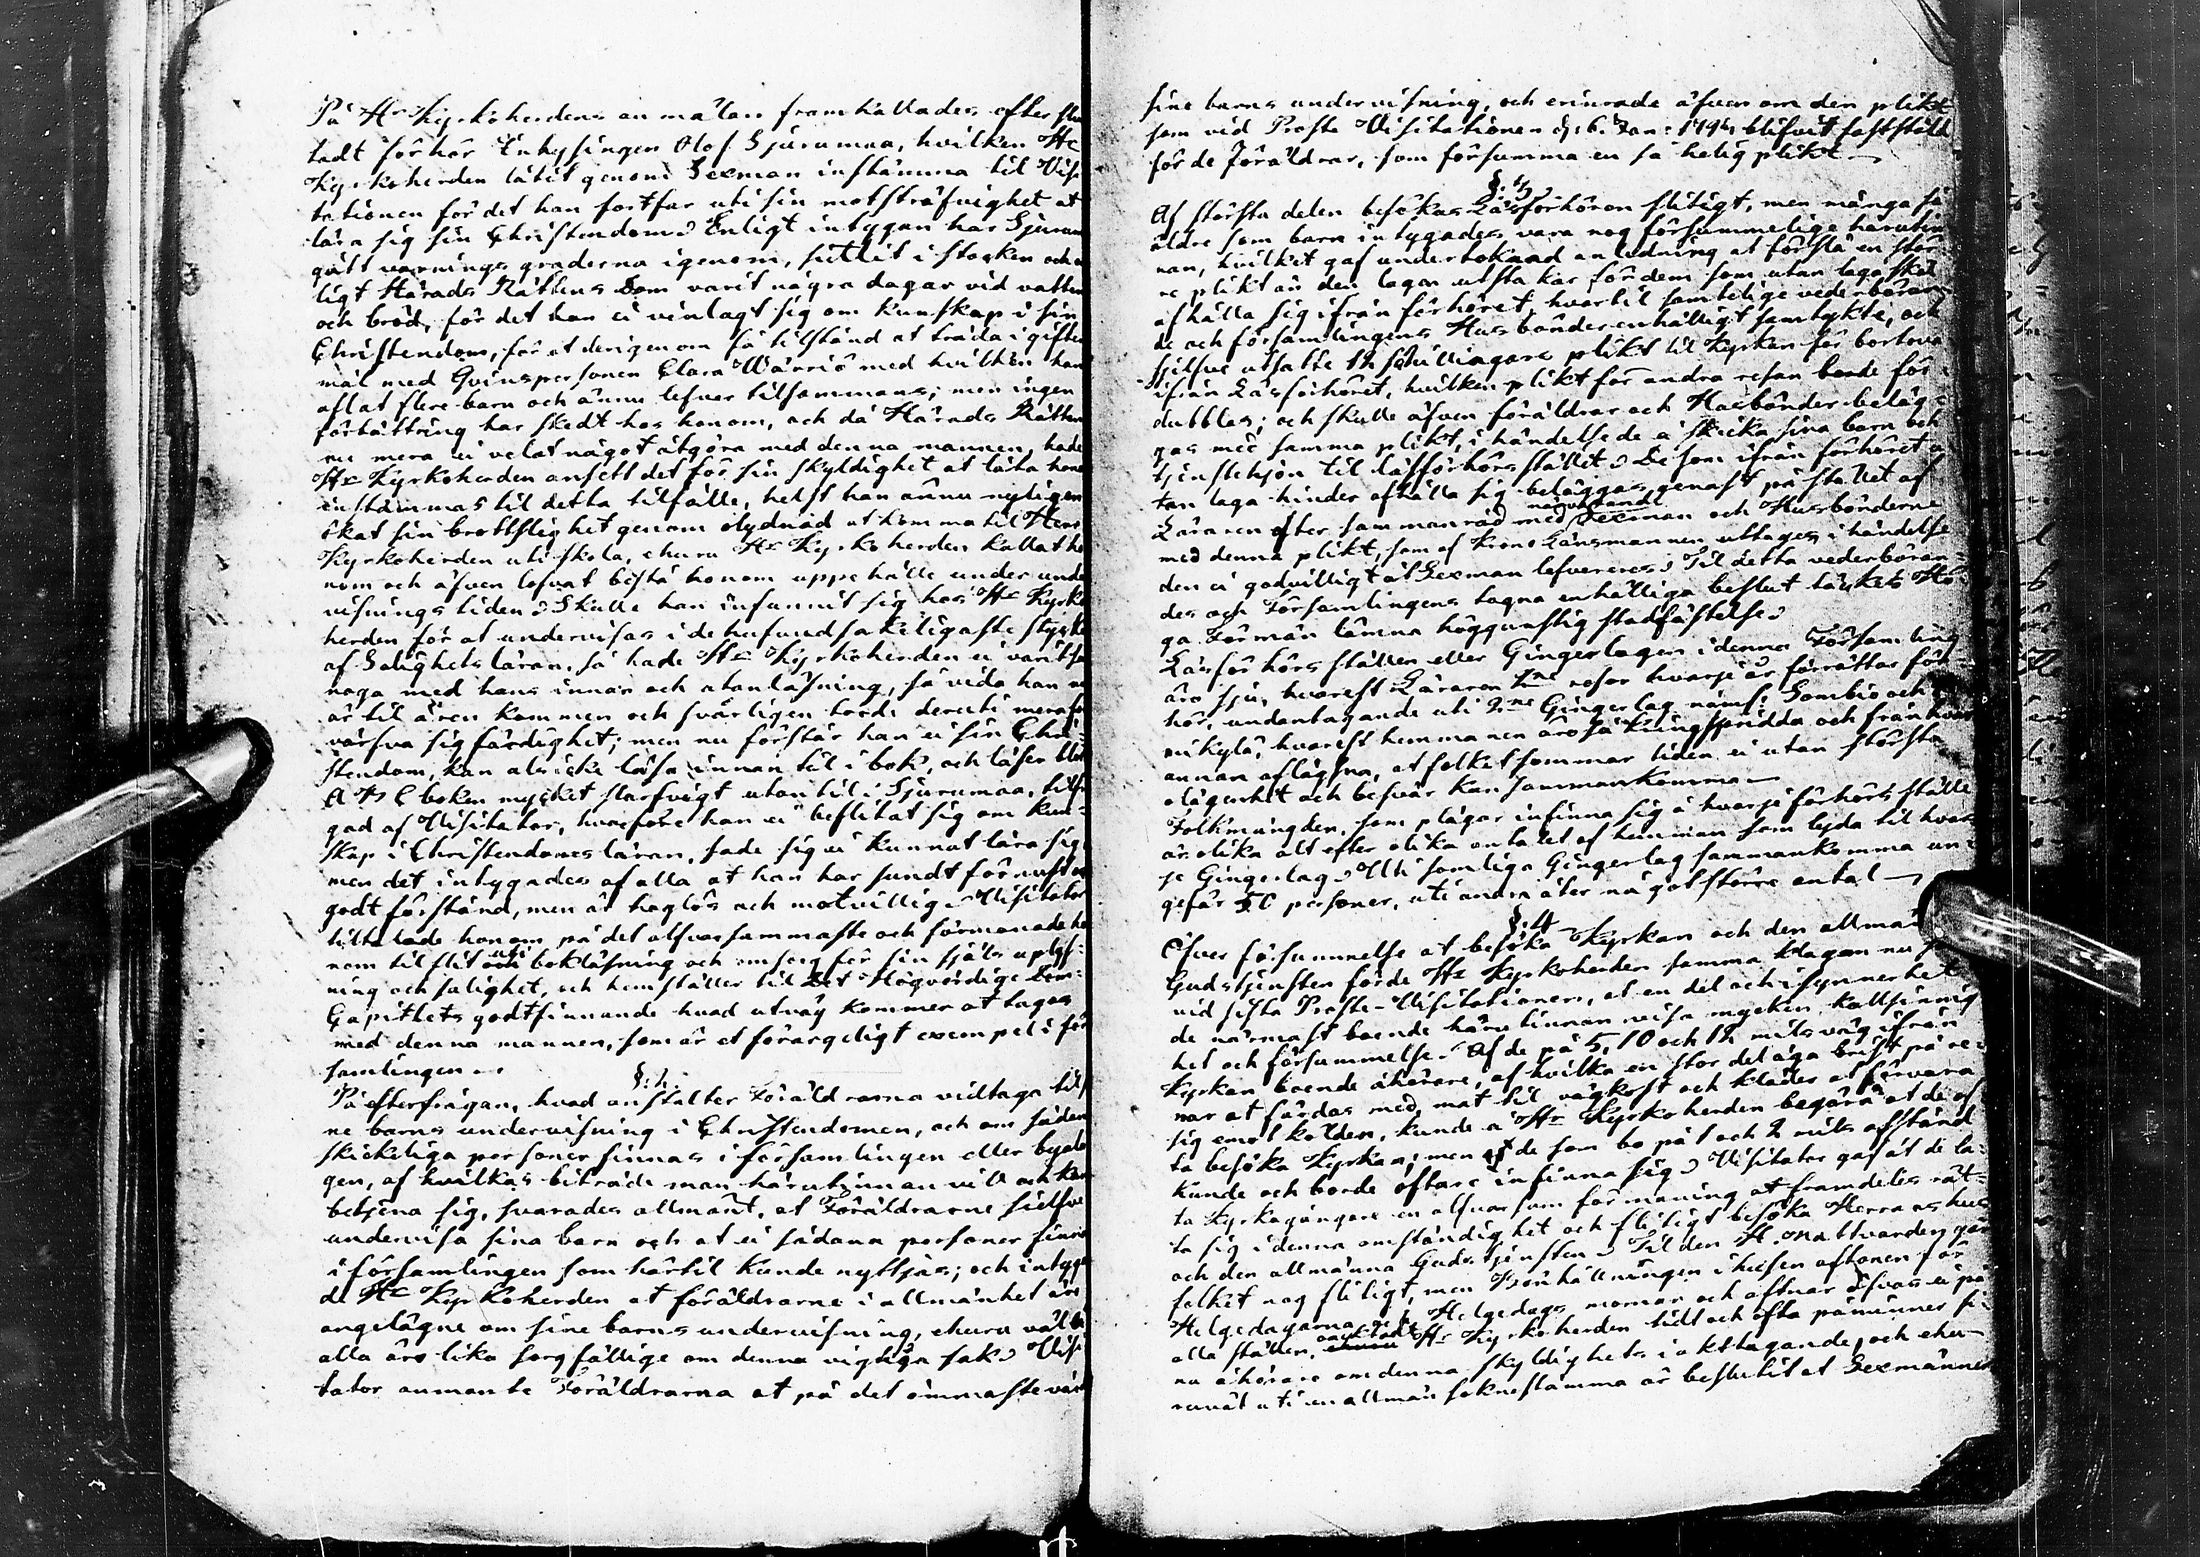 På Hr Kyrkoherdens anmälan framhållades efter slu
tadt förhör Inhysingen Olof Sjurumaa, hvilken Hr
Kyrkoherden låtit genom Sexman instämma til Visi
tationen för det han fortfar uti sin motsträfvighet at
lära sig sin Christendom. Enligt intygan har Sjurum
gått varnings graderna igenom, suttit i stocken och en
ligt Härads Rättens Dom varit några dagar vid vatten
och bröd, för det han ei vinlagt sig om kunskap i sin
Christendom, för at derigenom få tilstånd at träda i gifter
mål med Qvinspersonen Clara Wärriö med hvilken han
aflat flere barn och ännu lefver tilsammans; men ingen
förbättring har skedt hos honom, och då Härads Rätten
nu mera ei velat något åtgöra med denna mannen, hade
Hr Kyrkoherden ansett det för sin skyldighet at låta hono
instämmas til detta tilfälle, helst han ännu nyligen
ökat sin brottslighet genom olydnad at komma til Herr
Kyrkoherden uti skola, ehuru Hr Kyrkoherden kallat ho
nom och äfven lofvat bestå honom uppehälle under unde
visnings tiden. Skulle han infunnit sig hos Hr Kyrko
herden för at undervisas i de hufvudsakeligaste stycke
af Salighets läran, så hade Hr Kyrkoherden ei varit så
noga med hans innan och utanläsning, så vida han nu
är til åren kommen och svårligen torde deruti mera för
värfva sig färdighet; men nu förstår han ei sin Chri-
stendom, kan als icke läsa innan til i bok, och läser blot
A B C boken mycket slarfvigt utan til. Sjurumaa, tilfrå
gad af Visitator, hvarföre han ei beflitat sig om kun-
skap i Christendoms läran, sade sig ei kunnat lära sig
men det intygades af alla at han har sundt förnuft och
godt förstånd, men är hoglös och motvillig. Visitator
tiltalade honom på det alfvarsammaste och förmanade ho
nom til flit uti bokläsning och omsorg för sin själs uplys-
ning och salighet, och hemställer til Det Högvördige Dom-
Capitlets godtfinnande hvad utväg kommer at tagas
med denna mannen, som är et förargeligt exempel i för
samlingen.
§. 2.
På efterfrågan, hvad anstalter Föräldrarna vidtaga til si
ne barns undervisning i Christendomen, och om sådane
skickeliga personer finnas i församlingen eller byala
gen, af hvilkas biträde man härutinnan vill och kan
betjena sig, svarades allmänt, at Föräldrarne sielfve
undervisa sina barn och at ei sådana personer finna
i församlingen som härtil kunde nyttjas; och intyga
de Hr Kyrkoherden at föräldrarne i allmänhet äro
angelägne om sine barns undervisning, ehuru väl ei
alla äro lika sorgfällige om denna vigtiga sak. Visi
tator anmante Föräldrarna at på det ömmaste vårda
sine barns undervisning, och erinrade äfven om den plikt
som vid Prosts Visitationen d. 6. Jan: 1794 blifvit faststäld
för de Föräldrar, som försumma en så helig plikt
§. 3
Af största delen besökas Läsförhören flitigt, men många så
äldre som barn intygades vara nog försummelige härutin
nan, hvilket gaf underbokaad anledning at förstå en stör-
re plikt än den lagen utstakar för dem som utan laga skäl
afhålla sig ifrån förhöret, hvartil samtelige vederböran
de och församlingens Husbönder enhälligt samtykte, och
sielfve utsatte 12 skillingars plikt til Kyrkan för bortova
ifrån Läsförhöret, hvilken plikt för andra resan borde för
dubblas; och skulle äfven föräldrar och Husbönder beläg-
gas med samma plikt, i händelse de ei skicka sina barn och
tjenstehjon til läsförhörs stället. De som ifrån förhöret u
tan laga hinder afhålla sig beläggas genast på stället af
Läraren efter sammanråd med närvarande Sexman och Husbönderne
med denna plikt, som af Krono Länsmannen uttages i händelse
den ei godvilligt åt Sexman lefvereras. Til detta vederböran-
des och Församlingens tagna enhälliga beslut täcktes Hö-
ga Förmän lämna höggunstig stadfästelse.
Läsförhörs ställen eller Gingerlagen i denna Församling
äro sju, hvarest Läraren 2ne resor hvarje år förrättar för-
hör, undantagande uti 2ne Gingerlag näml: Sombio och
nikylä, hvarest hemmanen äro så kringspridda och från hvar
annan aflägsna, at folket sommar tiden ei utan största
olägenhet och besvär kan sammankomma
Folkmängden, som plägar infinna sig å hvarje förhörs ställe
är olika alt efter olika antalet af hemman som lyda til hvar
je Gingerlag. Uti somliga Gingerlag sammankomma un-
gefär 50 personer, uti andra åter något större antal
§. 4
Öfver försummelse at besöka Kyrkan och den allmän
Gudstjensten förde Hr Kyrkoherden samma klagan nu
vid sista Prosts-Visitationen, at en del och i synnerhet
de närmast boende härutinnan visa mycken kallsinnig
het och försummelse. Af de på 5, 10 och 12 mils väg ifrån
Kyrkan boende åhörare, af hvilka en stor del äga brist på re-
nar at färdas med, mat til vägkost och kläder at förvara
sig emot kölden, kunde ei Hr Kyrkoherden begära at de of
ta besöka Kyrkan; men de som bo på 1 och 2 mils afstånd
kunde och borde oftare infinna sig. Visitator gaf åt de la-
ta Kyrkogångare en alfvarsam förmaning at framdeles rät-
ta sig i denna omständighet och flitigt besöka Herrans hus
och den allmänna Gudstjensten. Til den H. Nattvarden går
folket nog flitigt, men Bönhållningen i husen aftonen för
Helgedagarna och Helgedags mornar och aftnar öfvas ei på
alla ställen, oagtadt Hr Kyrkoherden tidt och ofta påminner si
na åhörare om denna skyldighets i akttagande, och ehu-
ruväl uti en allmän soknestämma är beslutit at Sexmännen